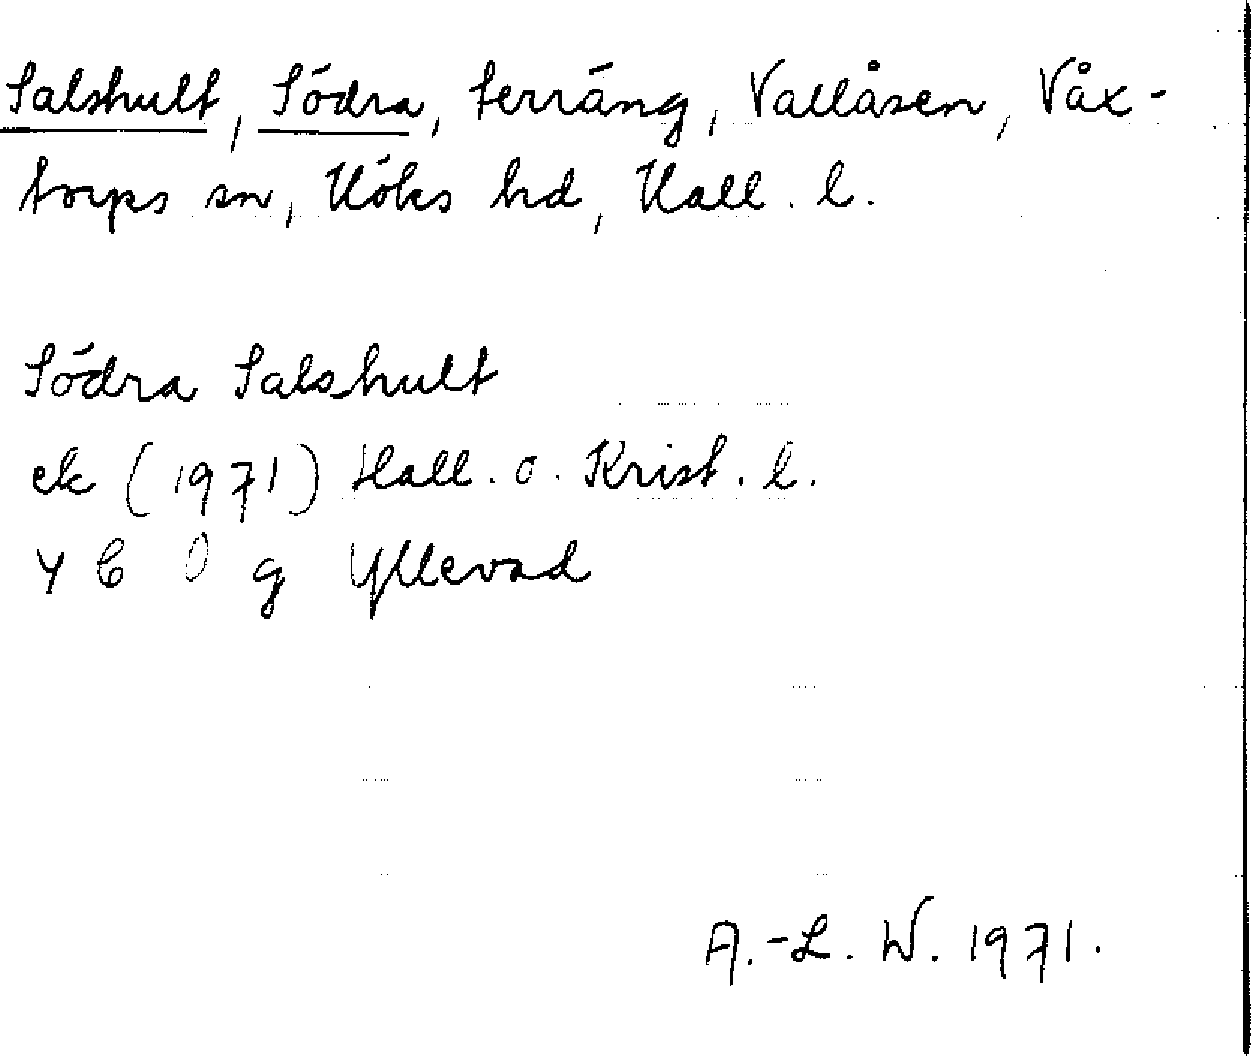 Salshult, Södra, terräng, Vallåsen, Våx-
torps sn, Höks hd, Hall. l.
Södra Salshult
ek (1971) Hall. o. Krist. l.
4 C 0 g Yllevad
A.-L. W. 1971.